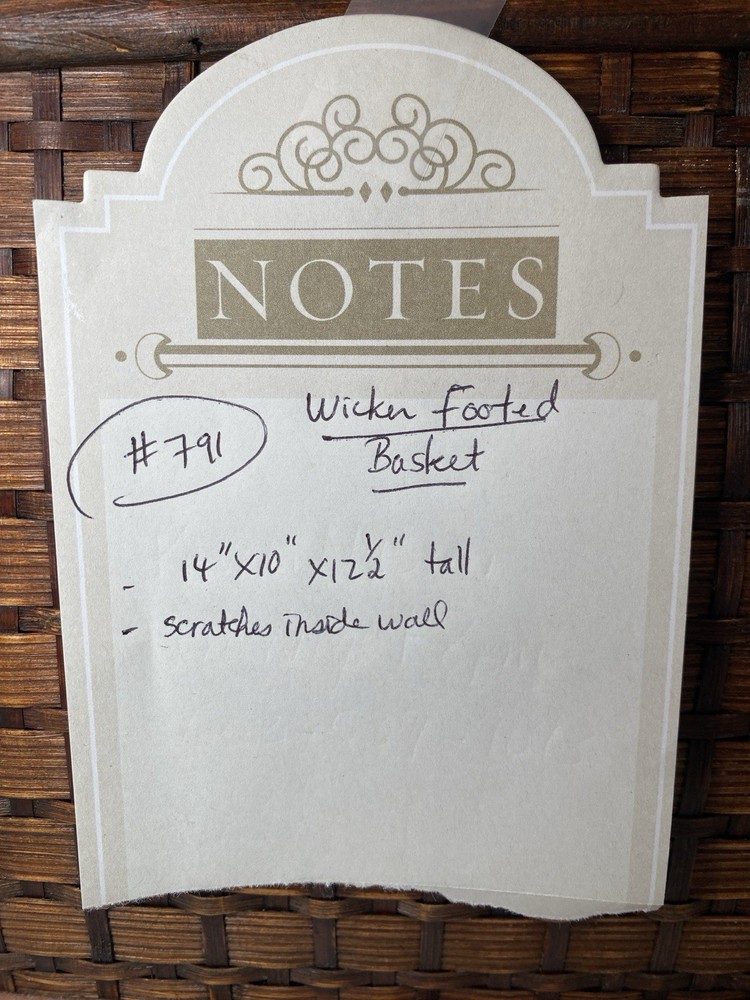 NOTES
#791
Wicker Footed
Basket
- 14" X10" X12½" tall
- scratches inside wall